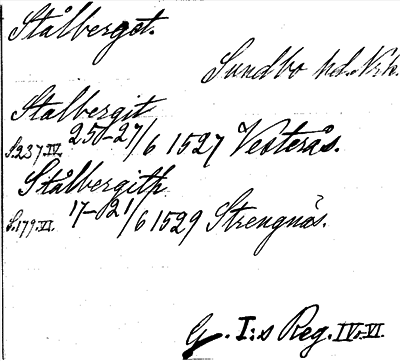 Stålberget.
Sundbo hd. Nrk.
Stalbergit
S.237.IV. 250-27/6 1527 Vesterås.
Stålbergith
S.179.VI. 17-21/6 1529 Strengnäs.
G. I:s Reg. IV. VI.